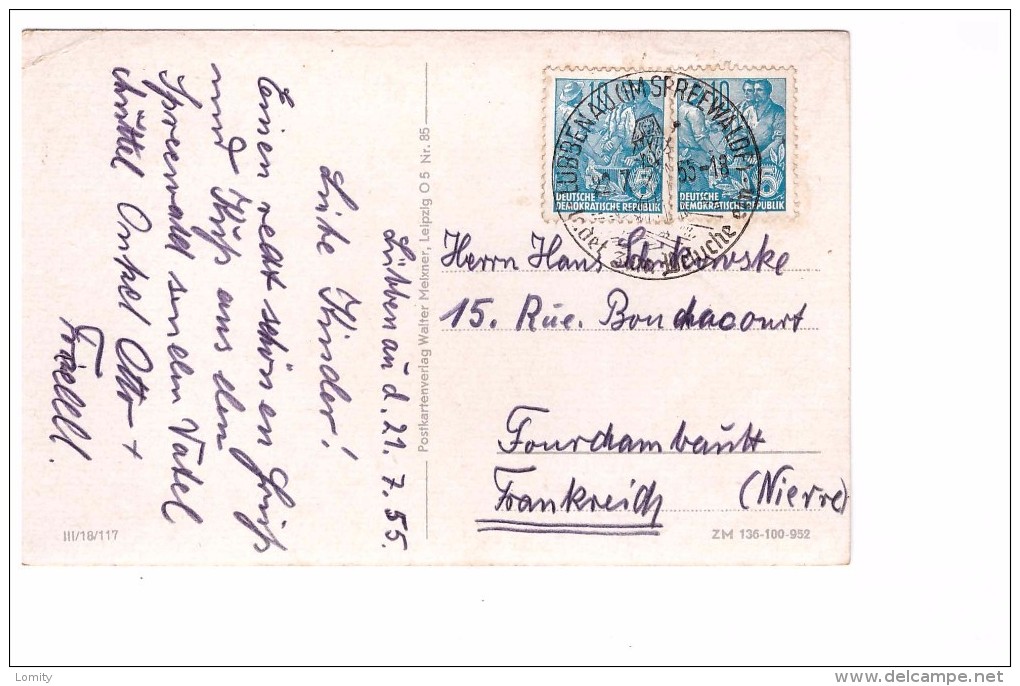 Lübbenau d. 21. 7. 55.
Liebe Kinder!
Einen recht schönen Gruß
und Kuß aus dem
Spreewald senden Vatel
Onkel Otto +
Postkartenverlag Walter Meixner, Leipzig O 5 Nr. 85
III/18/117
10
10
DEUTSCHE
DEMOKRATISCHE REPUBLIK
5
DEUTSCHE
DEMOKRATISCHE REPUBLIK
5
LÜBBENAU (IM SPREEWALDE)
55-18
Herrn Hans
15. Rue. Bonchacourt
Fourchambault
Frankreich (Nievre)
ZM 136-100-952
Lomity
delcampe.net